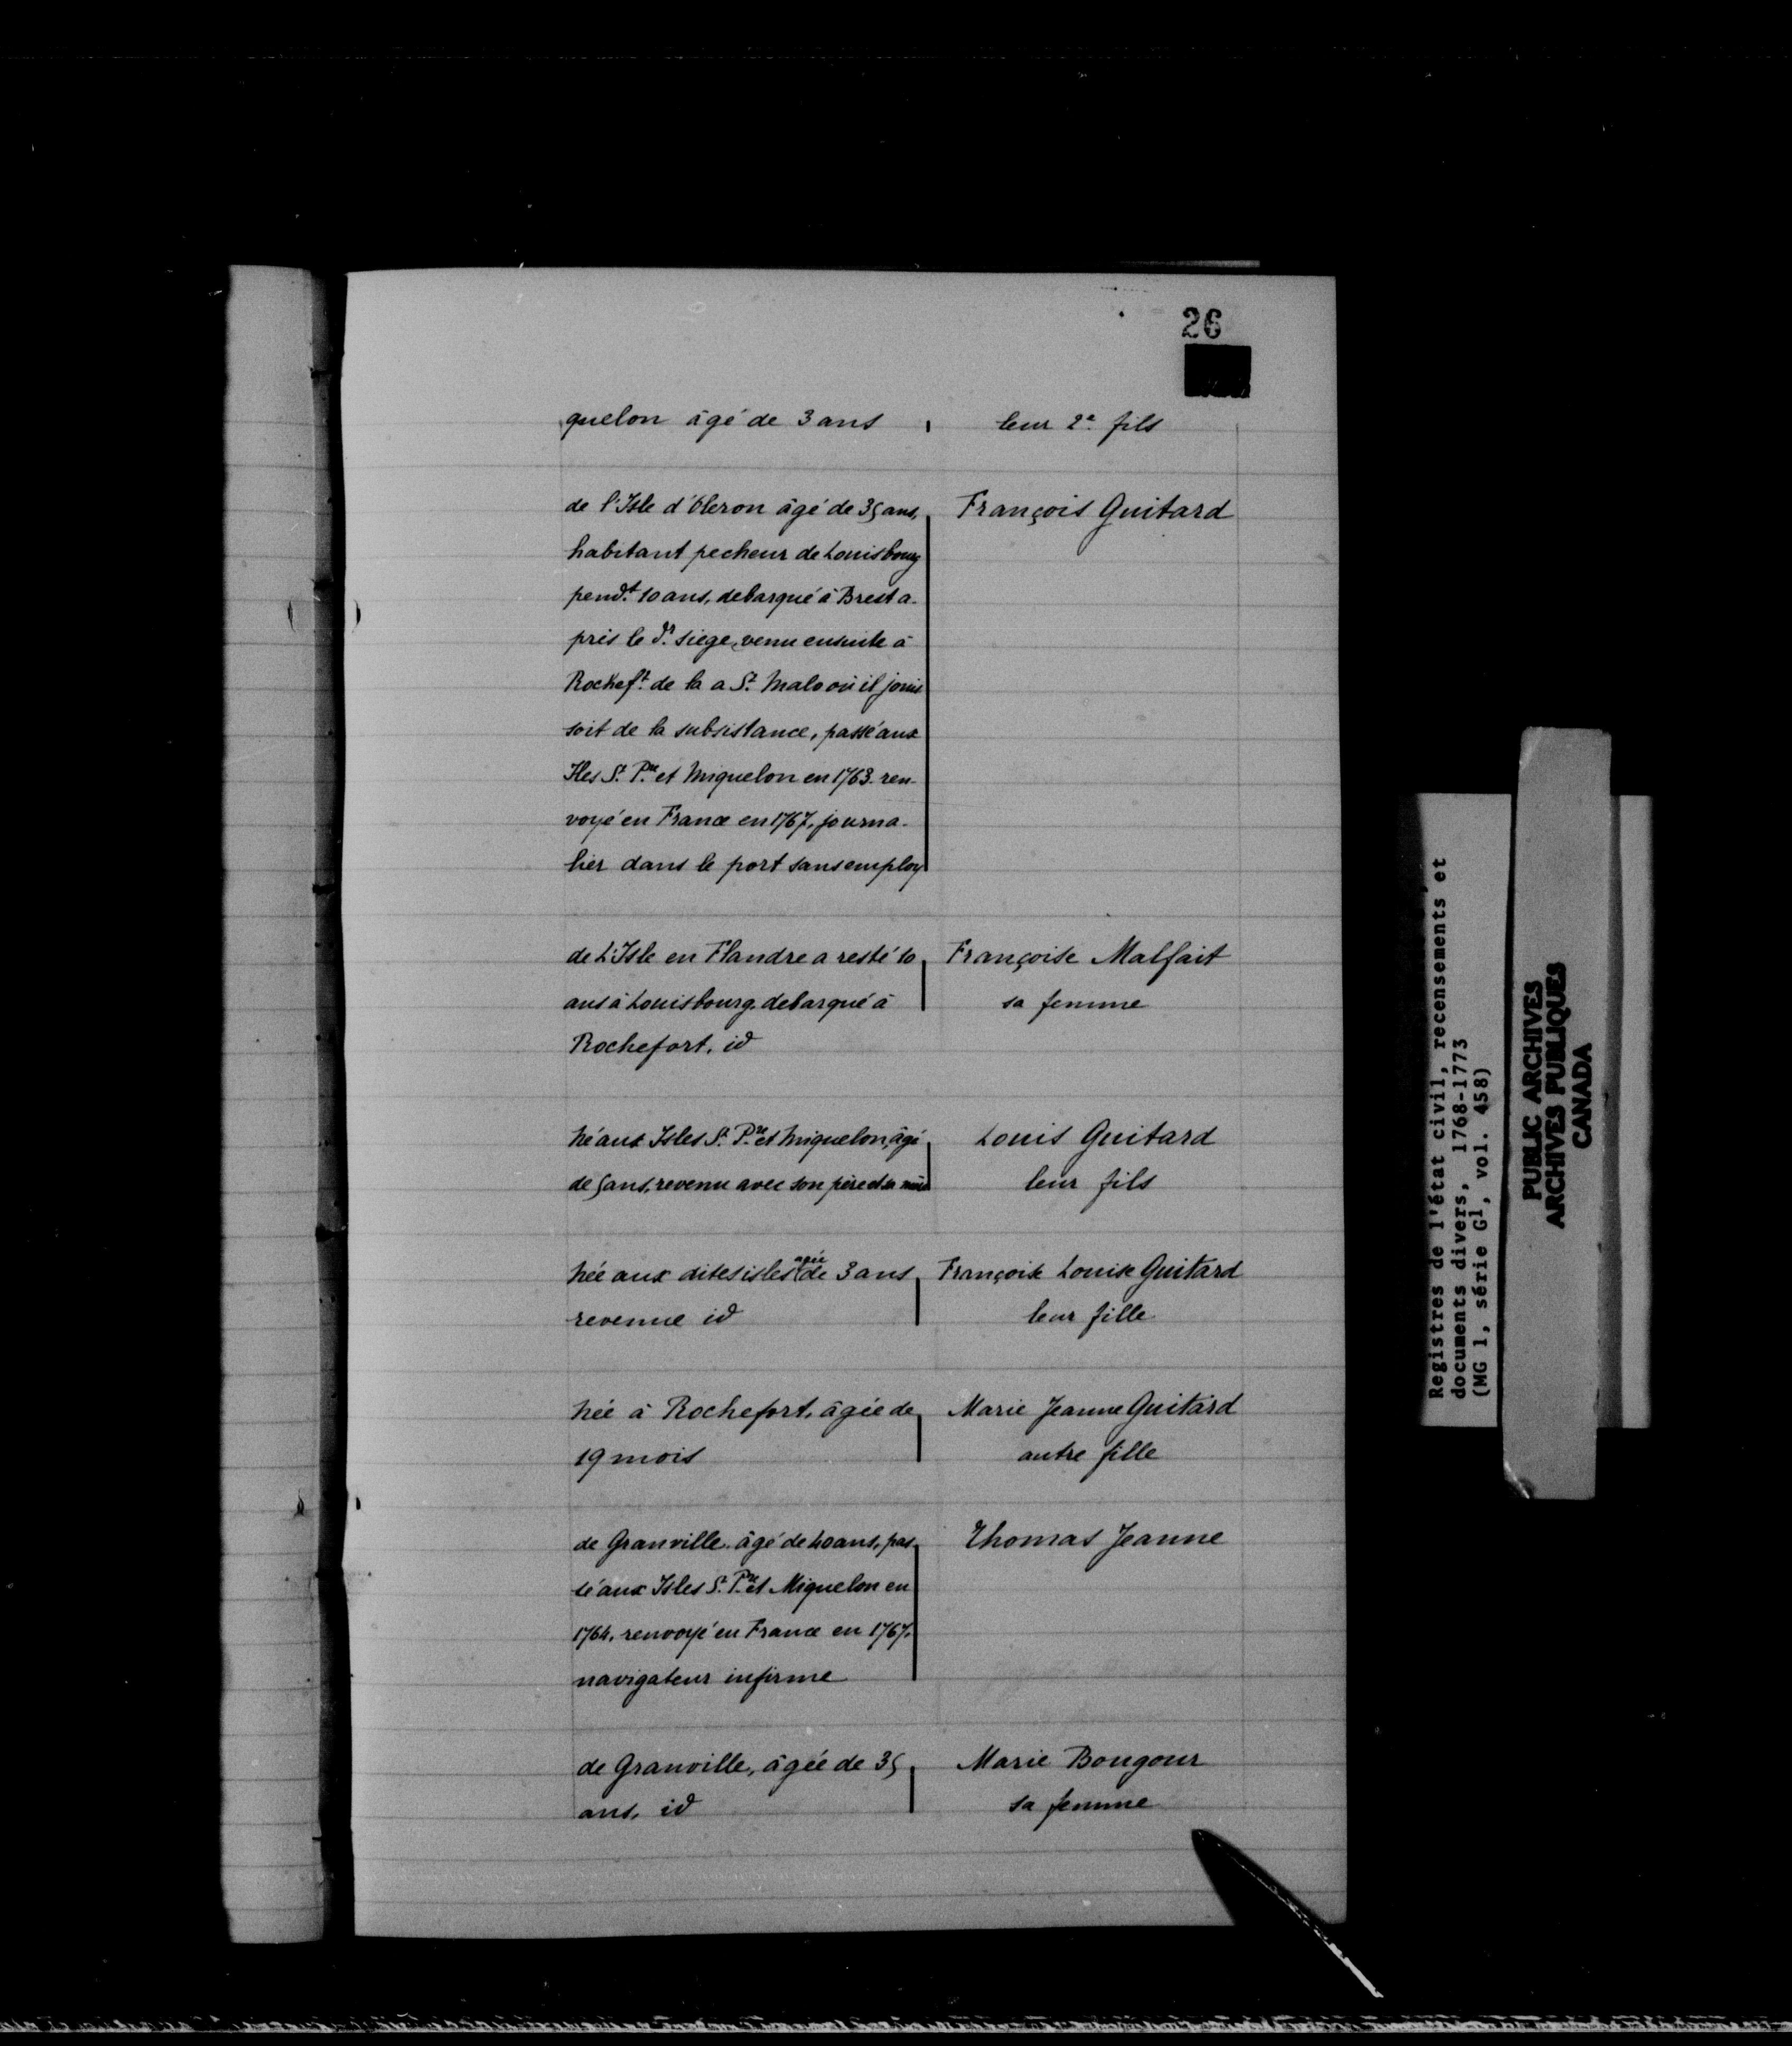 26
quelon âgé de 3 ans
leur 2e fils
de l'Isle d'Oleron âgé de 35 ans,
François Guitard
habitant pecheur de Louisbourg
pendt. 10 ans, debarqué à Brest a-
près le dr. siege, venu ensuite à
Rocheft. de la a St. Malo où il jouis
soit de la subsistance, passé aux
Iles St. Pre. et Miquelon en 1763. ren-
voyé en France en 1767, journa-
lier dans le port sans employ
de L'Isle en Flandre a resté 10
Françoise Malfait
ans à Louisbourg, debarqué à
sa femme
Rochefort, id
Né aux Isles St. Pre. et Miquelon, âgé
Louis Guitard
de 5 ans, revenu avec son père et sa mère
leur fils
Née aux dites isles agée de 3 ans
Françoise Louise Guitard
revenue id
leur fille
Née à Rochefort, âgée de
Marie Jeanne Guitard
19 mois
autre fille
de Granville âgé de 40 ans, pas
Thomas Jeanne
sé aux Isles St. Pre. et Miquelon en
1764, renvoyé en France en 1767,
navigateur infirme
de Granville, âgée de 35
Marie Bougour
ans, id
sa femme
Registres de l'état civil, recensements et
documents divers, 1768-1773
(MG 1, série G1, vol. 458)
PUBLIC ARCHIVES
ARCHIVES PUBLIQUES
CANADA